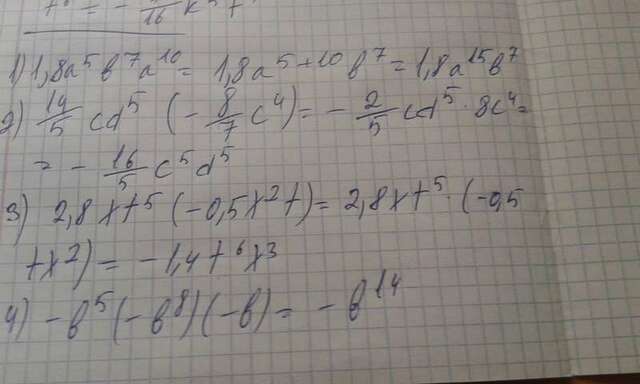 1) 1,8a⁵b⁷a¹⁰ = 1,8a⁵⁺¹⁰b⁷ = 1,8a¹⁵b⁷
2) 14/5 cd⁵ (- 8/7 c⁴) = - 2/5 cd⁵ · 8c⁴ =
= - 16/5 c⁵d⁵
3) 2,8xt⁵ (-0,5x²t) = 2,8xt⁵ · (-0,5
tx²) = - 1,4t⁶x³
4) - b⁵(-b⁸)(-b) = - b¹⁴